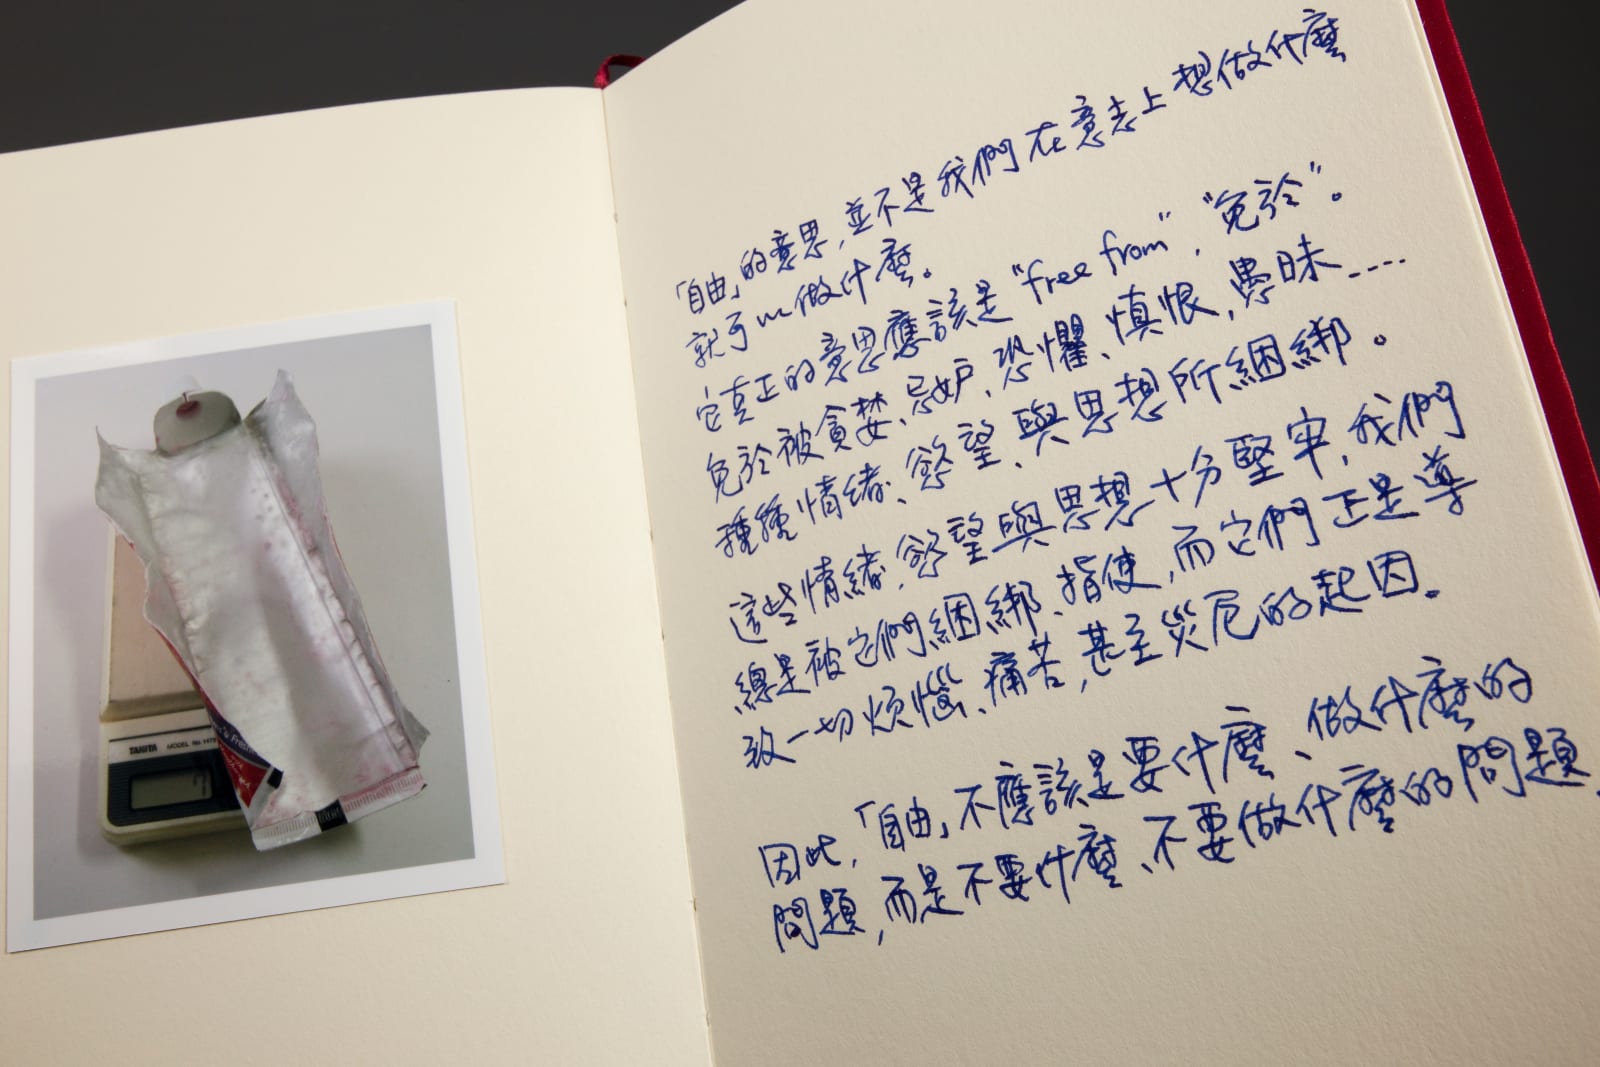 「自由」的意思，並不是我們在意志上想做什麼
就可以做什麼。
它真正的意思應該是“free from”，“免於”。
免於被貪婪、忌妒、恐懼、慎恨，愚昧……
種種情緒、慾望、與思想所綑綁。
這些情緒、慾望與思想十分堅牢，我們
總是被它們綑綁、指使，而它們正是導
致一切煩惱、痛苦，甚至災厄的起因。
因此，「自由」不應該是要什麼、做什麼的
問題，而是不要什麼、不要做什麼的問題，
TANITA MODEL No 1479